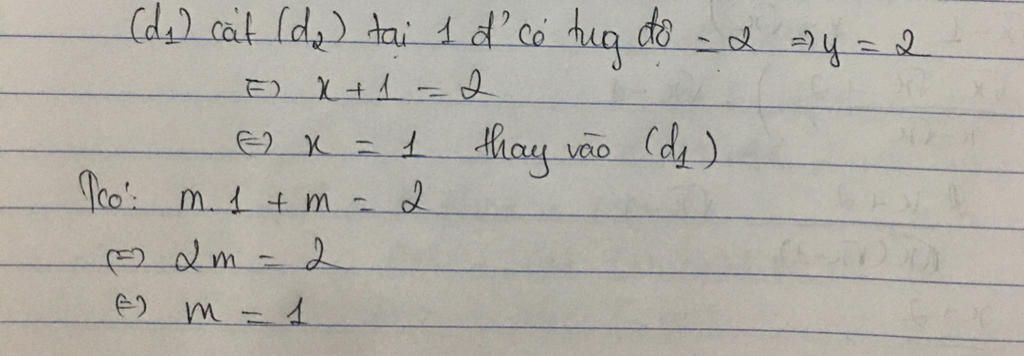 (d₁) cắt (d₂) tại 1 đ' có tug độ = 2 ⇒ y = 2
⇔ x + 1 = 2
⇔ x = 1 thay vào (d₁)
Tcó: m.1 + m = 2
⇔ 2m = 2
⇔ m = 1